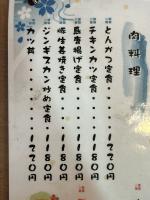 肉料理
とんかつ定食・・・・1220円
チキンカツ定食・・・1180円
鳥唐揚げ定食・・・・1180円
豚生姜焼き定食・・・1180円
ジンギスカン炒め定食・1180円
カツ丼・・・・・・・1220円